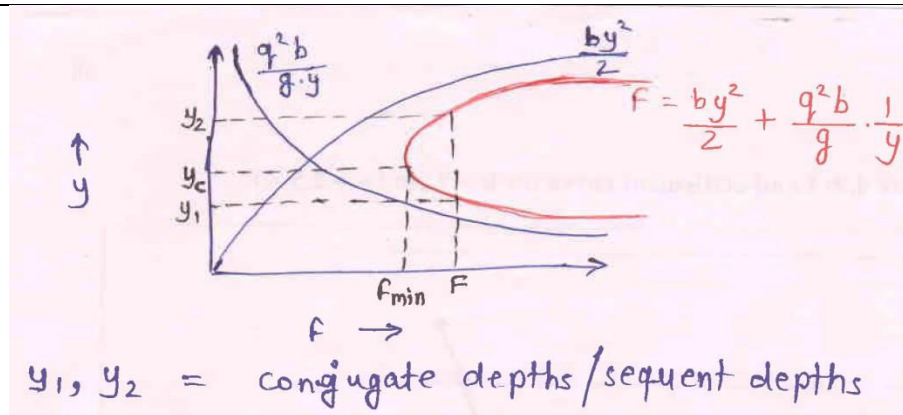 q²b / g·y
by² / 2
F = by² / 2 + q²b / g · 1 / y
y₂
yc
y₁
↑
y
Fmin F
F →
y₁, y₂ = conjugate depths / sequent depths